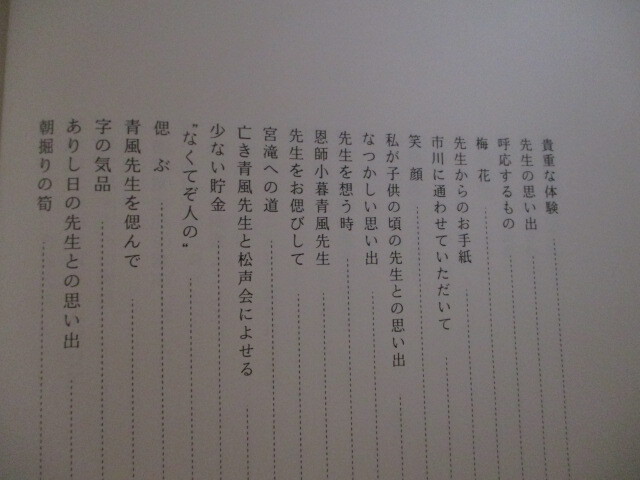 貴重な体験
先生の思い出
呼応するもの
梅花
先生からのお手紙
市川に通わせていただいて
笑顔
私が子供の頃の先生との思い出
なつかしい思い出
先生を想う時
恩師小暮青風先生
先生をお偲びして
宮滝への道
亡き青風先生と松声会によせる
少ない貯金
“なくてぞ人の”
偲ぶ
青風先生を偲んで
字の気品
ありし日の先生との思い出
朝掘りの筍